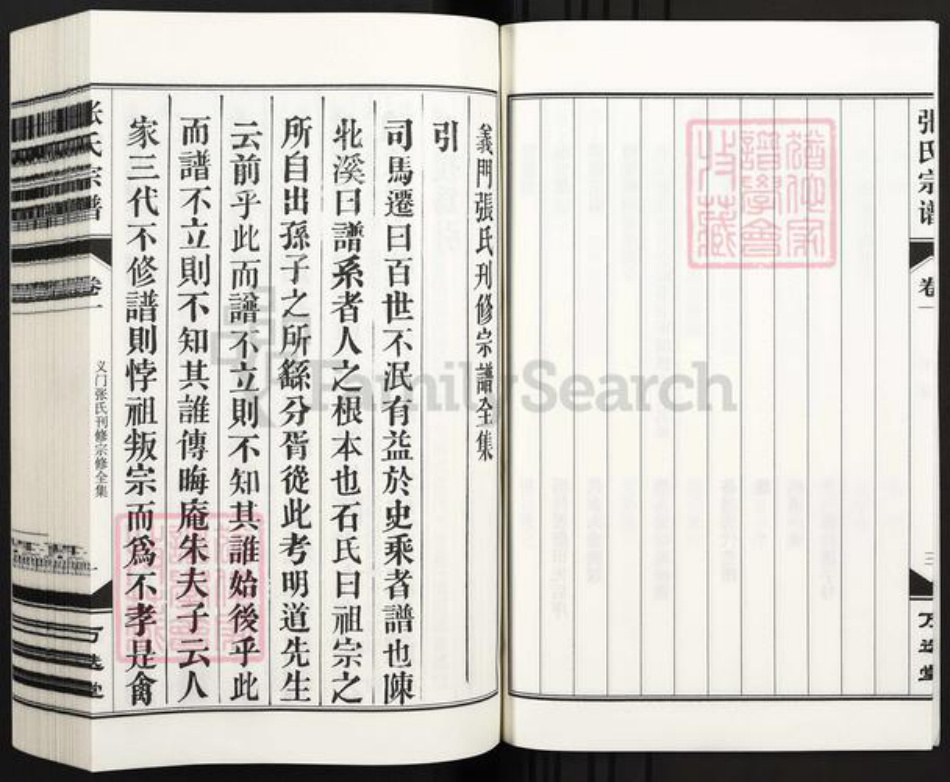 张氏宗谱
卷一
三
万选堂
義門張氏刊修宗譜全集
引
司馬遷曰百世不泯有益於史乘者譜也陳
北溪曰譜系者人之根本也石氏曰祖宗之
所自出孫子之所繇分胥從此考明道先生
云前乎此而譜不立則不知其誰始後乎此
而譜不立則不知其誰傳晦庵朱夫子云人
家三代不修譜則悖祖叛宗而爲不孝是禽
张氏宗谱
卷一
义门张氏刊修宗修全集
一
万选堂
FamilySearch